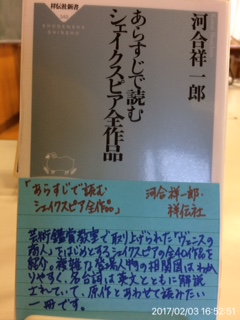 祥伝社新書
SHODENSHA
SHINSHO
河合祥一郎
あらすじで読む
シェイクスピア全作品
「あらすじで読む
シェイクスピア全作品」
河合祥一郎・
祥伝社
芸術鑑賞教室で取り上げられた「ヴェニスの
商人」をはじめとするシェイクスピアの全40作品を
紹介。複雑な登場人物の相関図はわか
りやすく、名台詞は英文とともに解説
されていて、原作とあわせて読みたい
一冊です。
2017/02/03 16:52:51